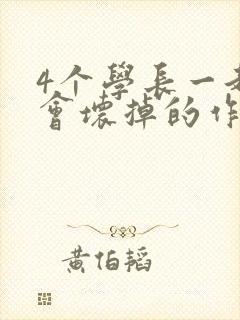 4个學長一起
會壞掉的作
黄伯韜